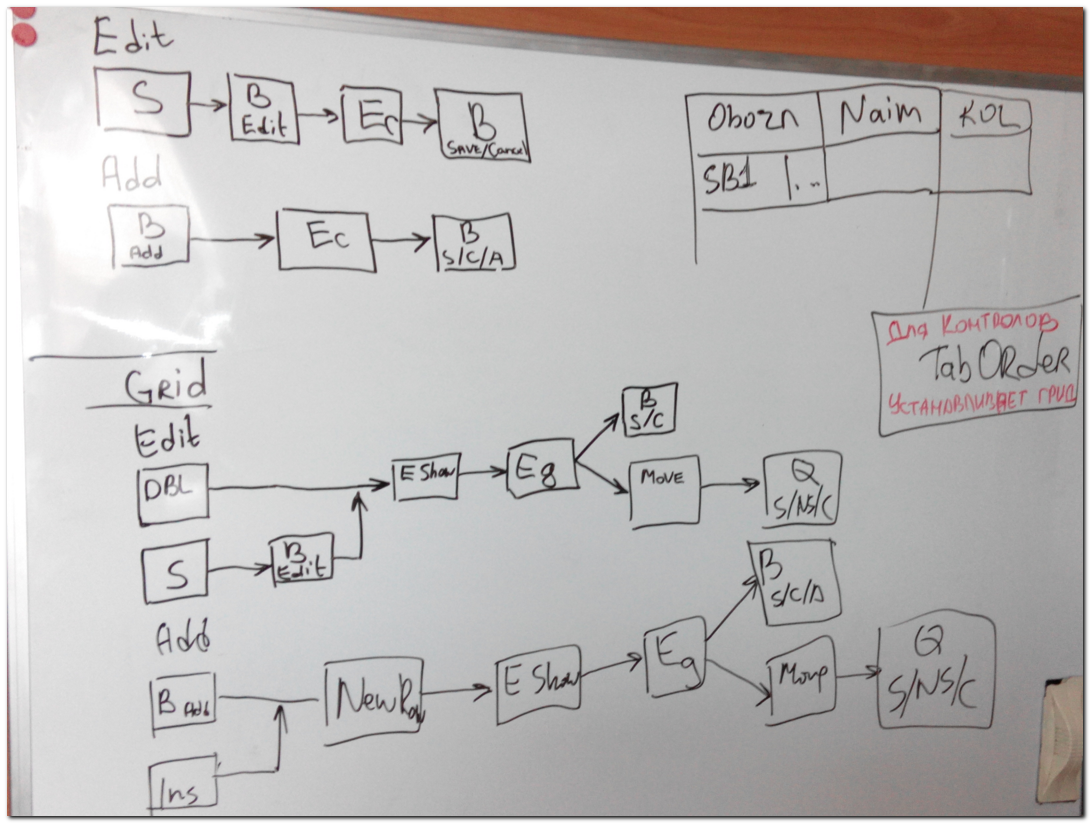 Edit
S
B
Edit
Ec
B
SAVE/Cancel
Add
B
Add
Ec
B
S/C/A
Obozn
Naim
KOL
SB1 | ...
Для контролов
TabORder
устанавливает грид
GRid
Edit
DBL
E Show
Eg
B
S/C
Move
Q
S/NS/C
S
B
Edit
Add
B Add
Ins
NewRow
E Show
Eg
B
S/C/A
Move
Q
S/NS/C